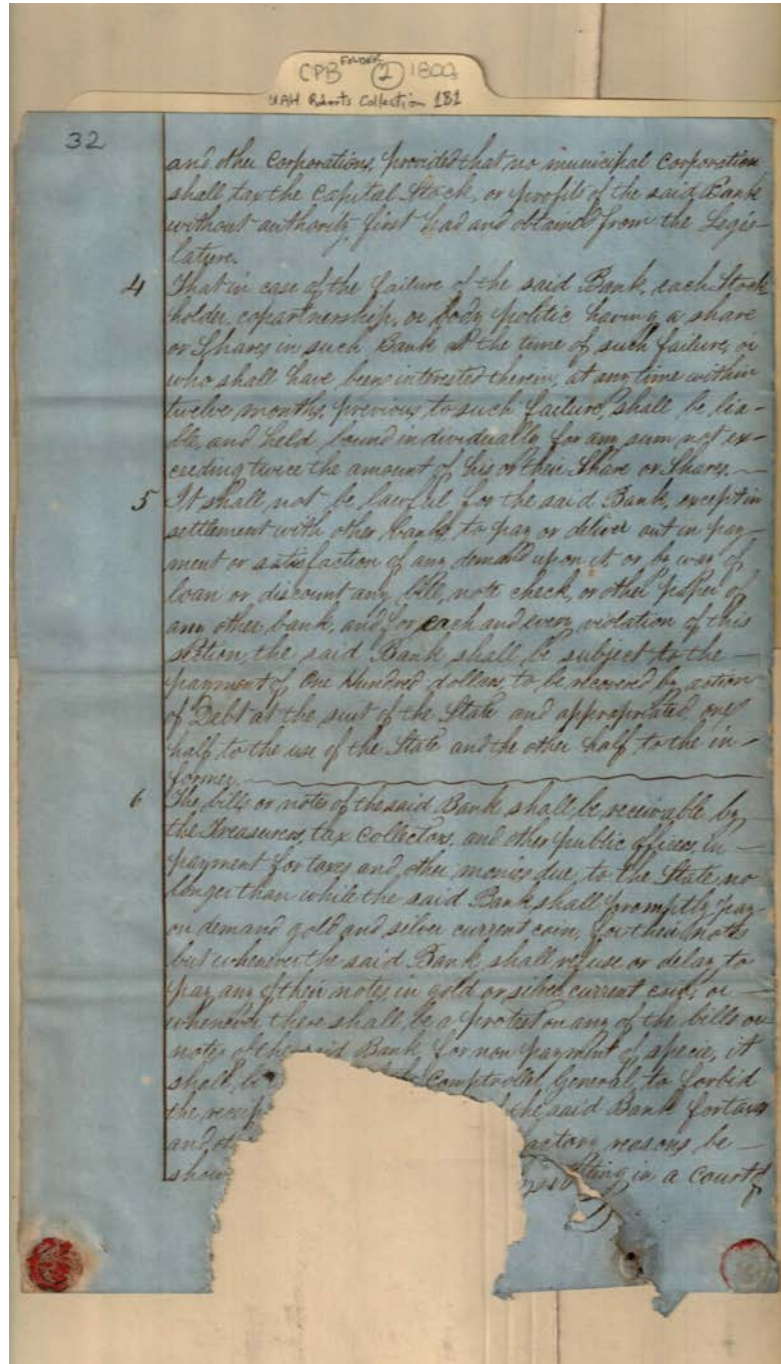 CPB FOLDER 2 1800s
UAH Roberts Collection 181
32
and other Corporations, provided that no municipal Corporation
shall tax the Capital Stock, or profits of the said Bank
without authority first had and obtained from the Legis-
lature.
4 That in case of the failure of the said Bank, each Stock
holder, copartnership, or body politic having a share
or Shares in such Bank at the time of such failure, or
who shall have been interested therein, at any time within
twelve months, previous to such failure, shall be lia-
ble, and held bound individually for any sum not ex-
ceeding twice the amount of his or their Share or Shares.
5 It shall not be lawful for the said Bank, except in
settlement with other banks to pay or deliver out in pay-
ment or satisfaction of any demand upon it or by way of
loan or discount any bill, note check, or other paper of
any other bank, and for each and every violation of this
section, the said Bank shall be subject to the
payment of One Hundred dollars to be recovered by action
of Debt at the suit of the State and appropriated, one
half to the use of the State and the other half to the in-
former.
6 The bills or notes of the said Bank shall be receivable by
the Treasurers, tax Collectors, and other public officers in
payment for taxes and other monies due to the State no
longer than while the said Bank shall promptly pay
on demand gold and silver current coin, for their notes
but whenever the said Bank shall refuse or delay to
pay any of their notes in gold or silver current coin, or
whenever there shall be a protest on any of the bills or
notes of the said Bank, for non payment of specie, it
shall be Comptroller General to forbid
the the said Bank for taxes
and reasons be
sitting in a Court of